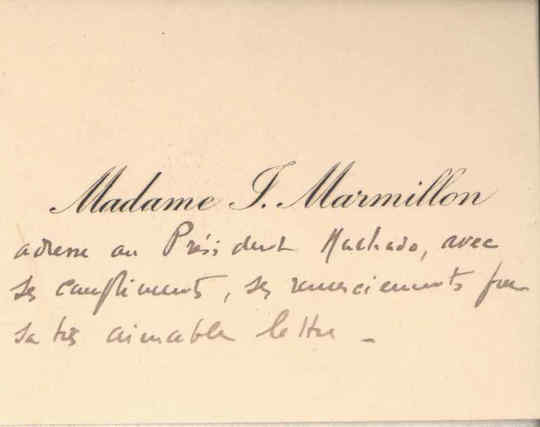 Madame J. Marmillon
adresse au Président Machado, avec
ses compliments, ses remerciements pour
sa très aimable lettre _